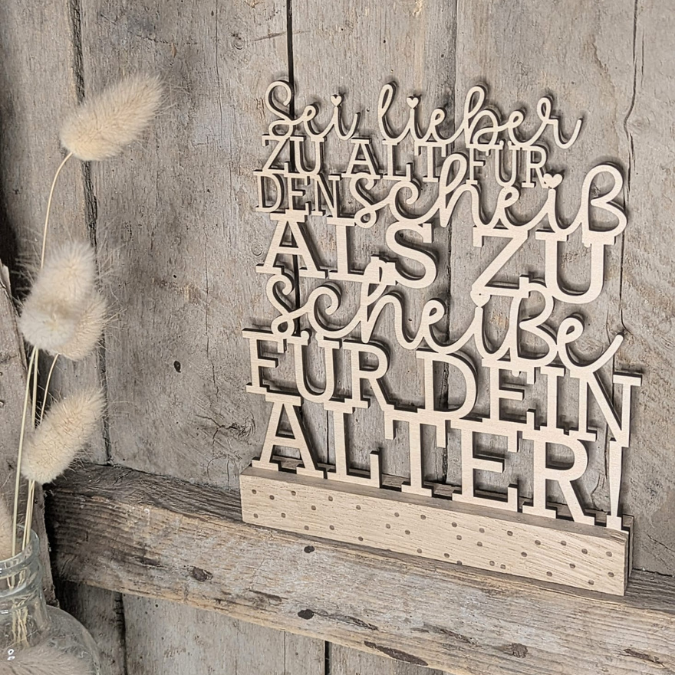 Sei lieber
ZU ALT FÜR
DEN scheiß
ALS ZU
scheiße
FÜR DEIN
ALTER!